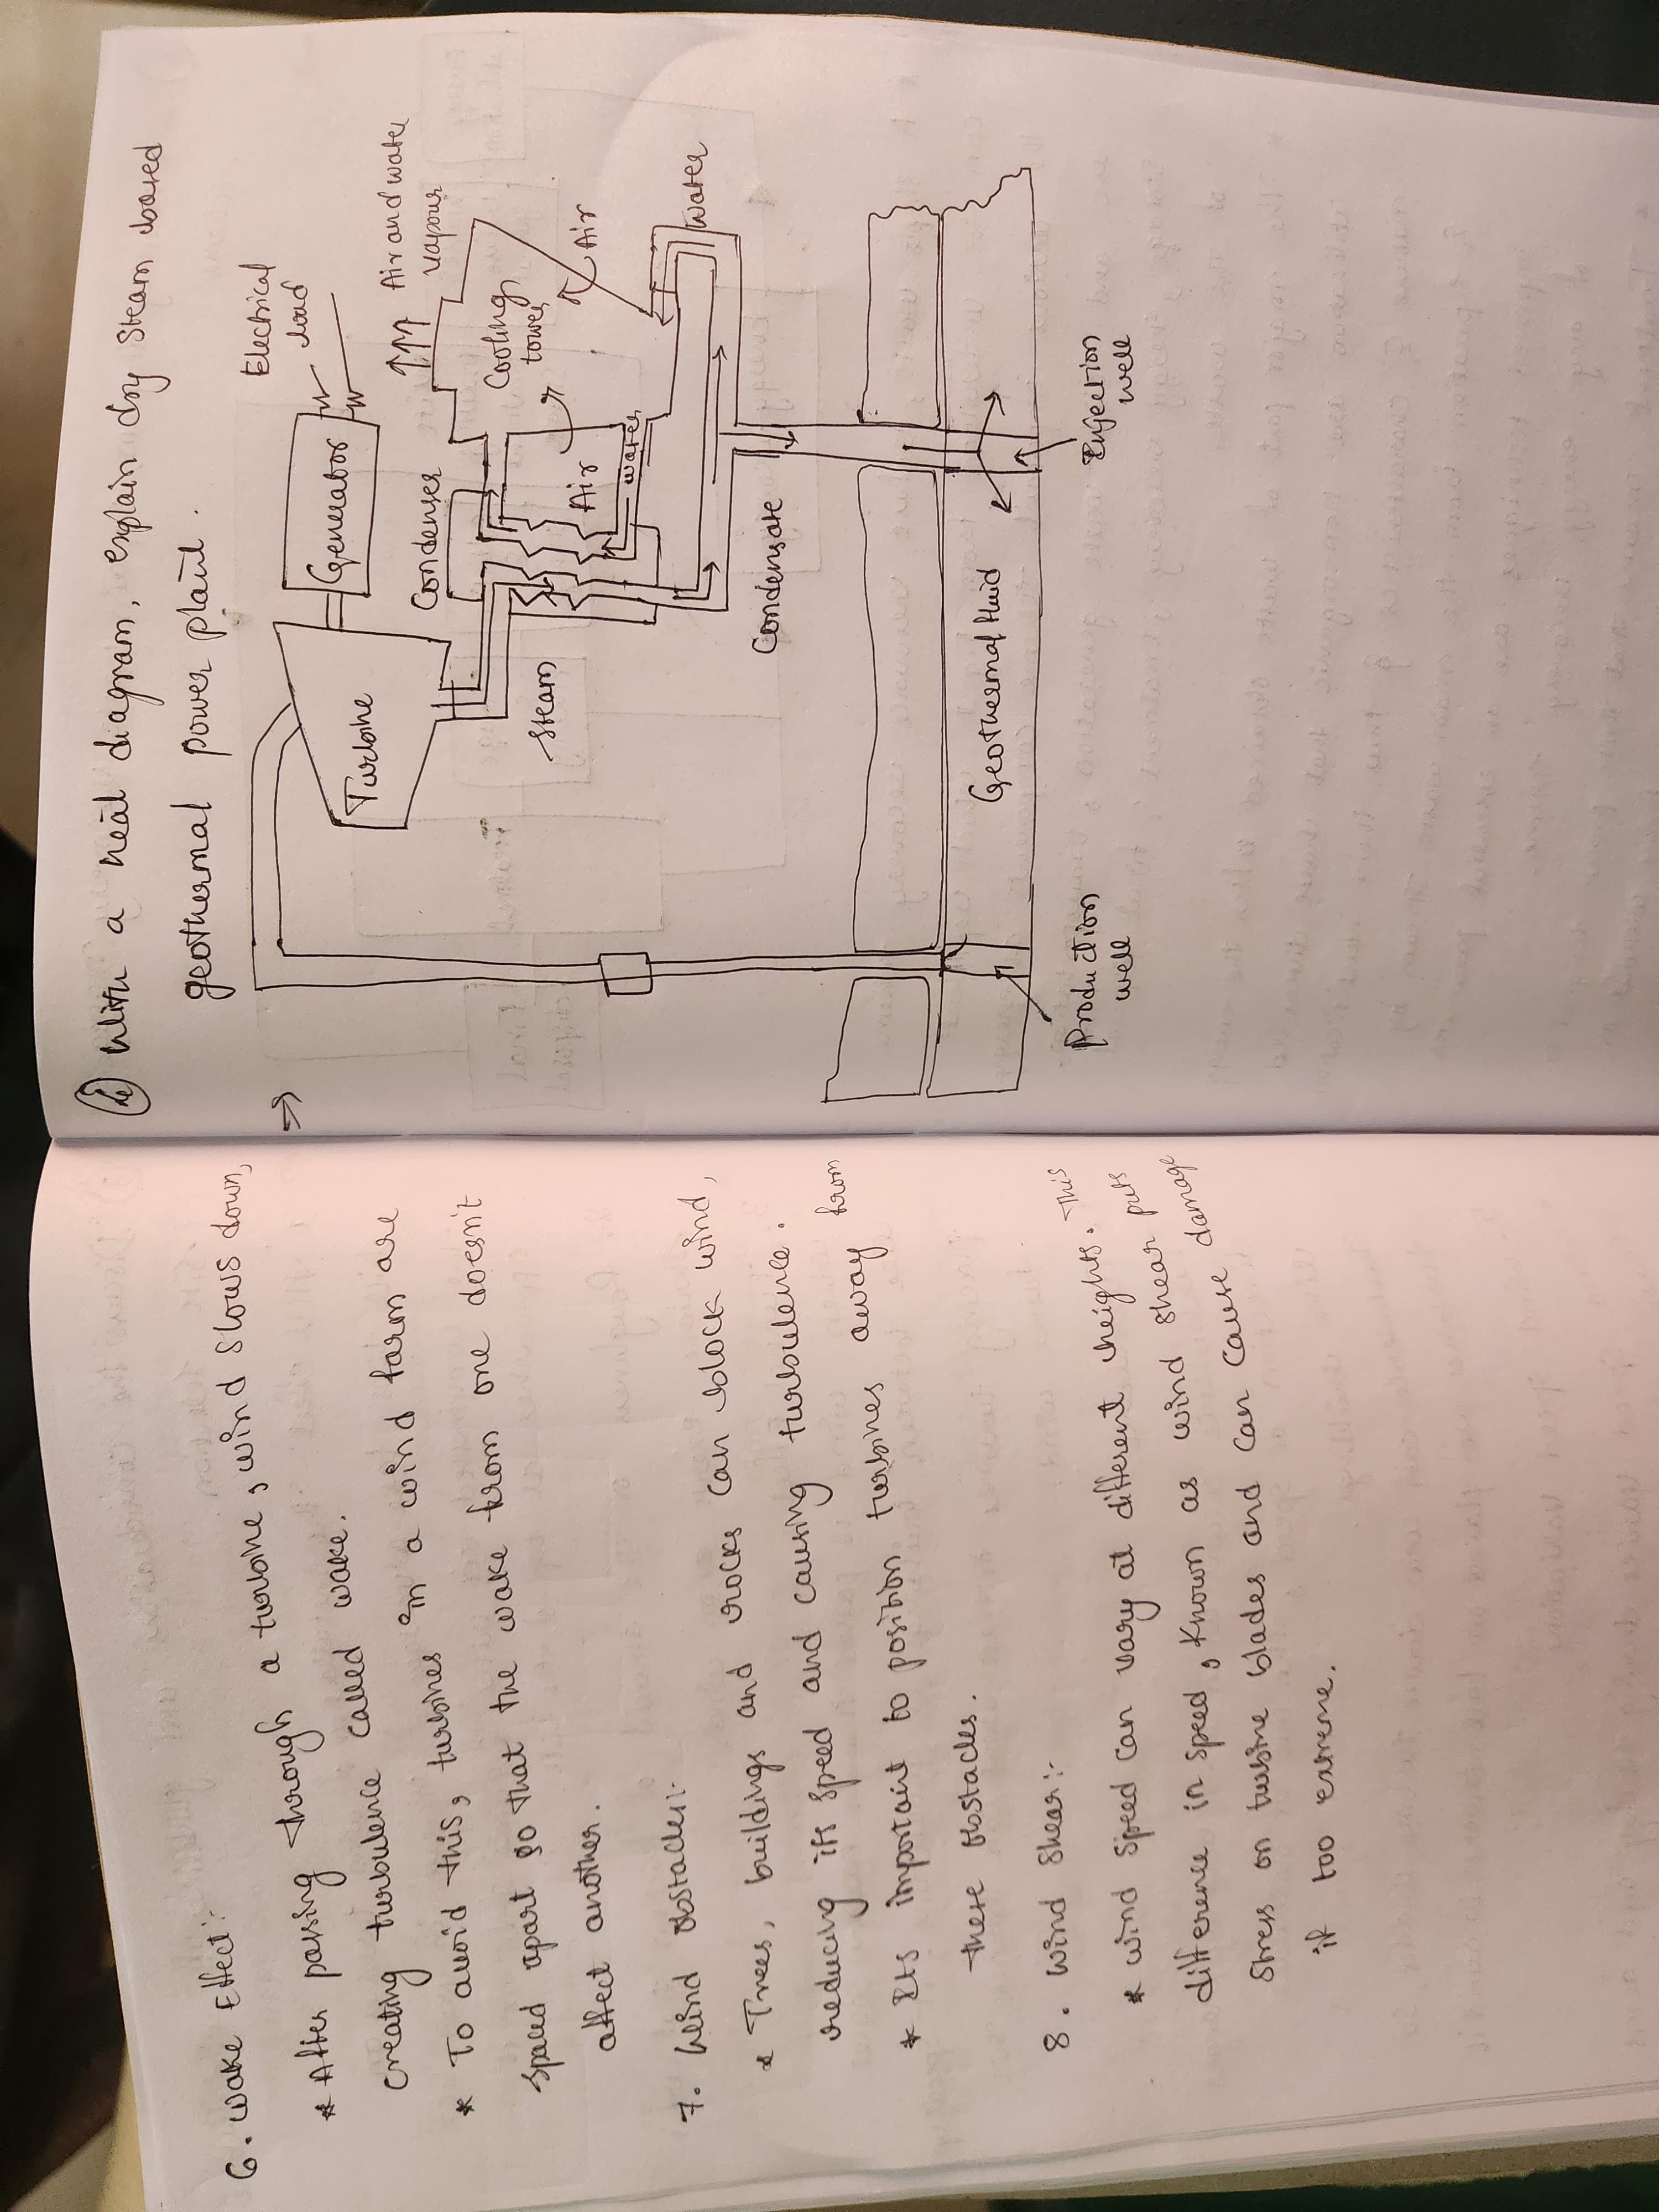 6. Wake Effect:-
* After passing through a turbine, wind slows down,
creating turbulence called wake.
* To avoid this, turbines in a wind farm are
spaced apart so that the wake from one doesn't
affect another.
7. Wind obstacles:-
* Trees, buildings and rocks can block wind,
reducing its speed and causing turbulence.
* Its important to position turbines away from
these obstacles.
8. Wind Shear:-
* wind speed can vary at different heights. This
difference in speed, known as wind shear puts
stress on turbine blades and can cause damage
if too extreme.
With a neat diagram, explain dry steam based
geothermal power plant.
→
Electrical
load
Generator
Turbine
Air and water
vapour
Condenser
Cooling
tower
Steam
Air
Air
water
Water
Condensate
Geothermal fluid
Production
well
Injection
well